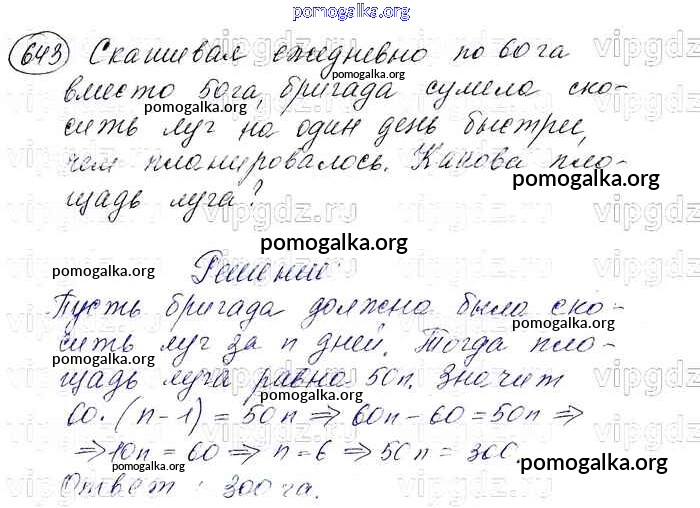 pomogalka.org
643 Скашивая ежедневно по 60 га
вместо 50га, бригада сумела ско-
pomogalka.org
pomogalka.org
сить луг на один день быстрее,
чем планировалось. Какова пло-
pomogalka.org
pomogalka.org
щадь луга?
pomogalka.org
Решение:
pomogalka.org
pomogalka.org
Пусть бригада должна была ско-
pomogalka.org
сить луг за n дней. Тогда пло-
pomogalka.org
pomogalka.org
щадь луга равна 50n. Значит
pomogalka.org
60·(n-1) = 50n ⇒ 60n - 60 = 50n ⇒
⇒ 10n = 60 ⇒ n = 6 ⇒ 50n = 300.
pomogalka.org
pomogalka.org
Ответ: 300 га.